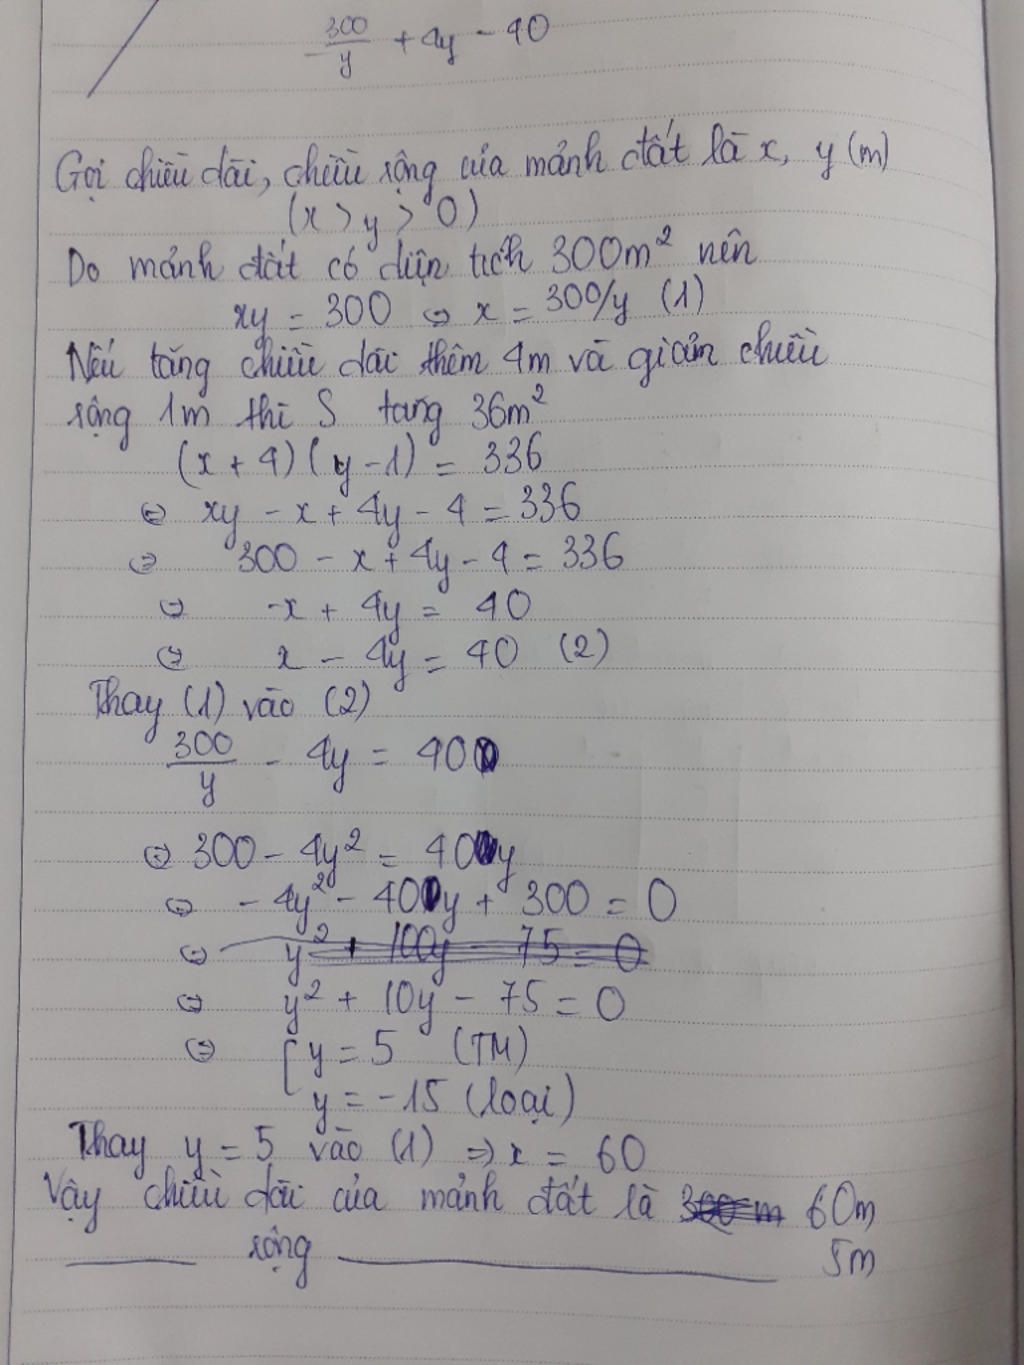 300/y + 4y - 40
Gọi chiều dài, chiều rộng của mảnh đất là x, y (m)
(x > y > 0)
Do mảnh đất có diện tích 300m² nên
xy = 300 ⇔ x = 300/y (1)
Nếu tăng chiều dài thêm 4m và giảm chiều
rộng 1m thì S tăng 36m²
(x + 4)(y - 1) = 336
⇔ xy - x + 4y - 4 = 336
⇔ 300 - x + 4y - 4 = 336
⇔ -x + 4y = 40
⇔ x - 4y = 40 (2)
Thay (1) vào (2)
300/y - 4y = 40
⇔ 300 - 4y² = 40y
⇔ - 4y² - 40y + 300 = 0
⇔ y² + 100y - 75 = 0
⇔ y² + 10y - 75 = 0
⇔ [ y = 5 (TM)
y = -15 (loại)
Thay y = 5 vào (1) => x = 60
Vậy chiều dài của mảnh đất là 300 m 60m
rộng 5m